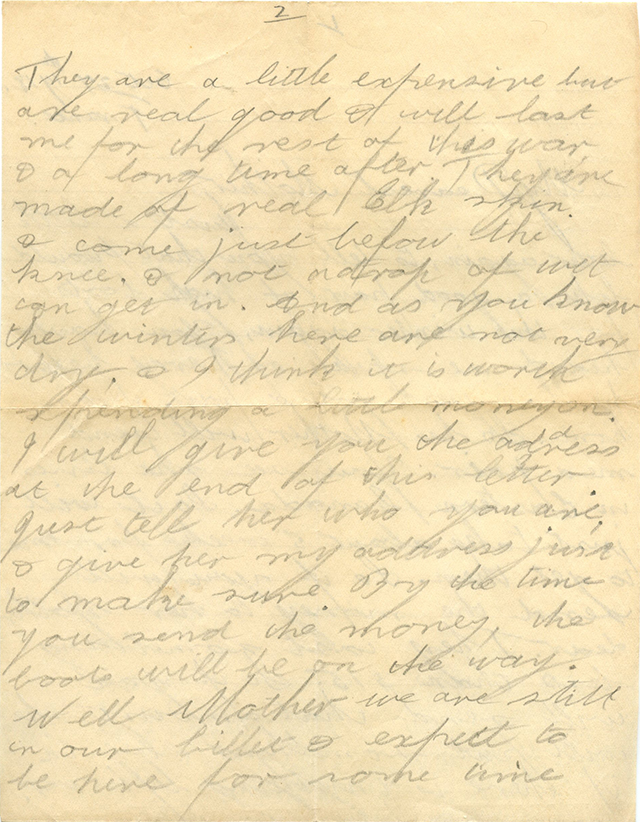 2
They are a little expensive but
are real good & will last
me for the rest of this war
& a long time after. They are
made of real Elk skin.
& come just below the
knee. & not a drop of wet
can get in. And as you know
the winters here are not very
dry. & I think it is worth
spending a little money on.
I will give you the address
at the end of this letter
Just tell her who you are.
& give her my address just
to make sure By the time
you send the money, the
boots will be on the way.
Well Mother we are still
in our billet & expect to
be here for some time